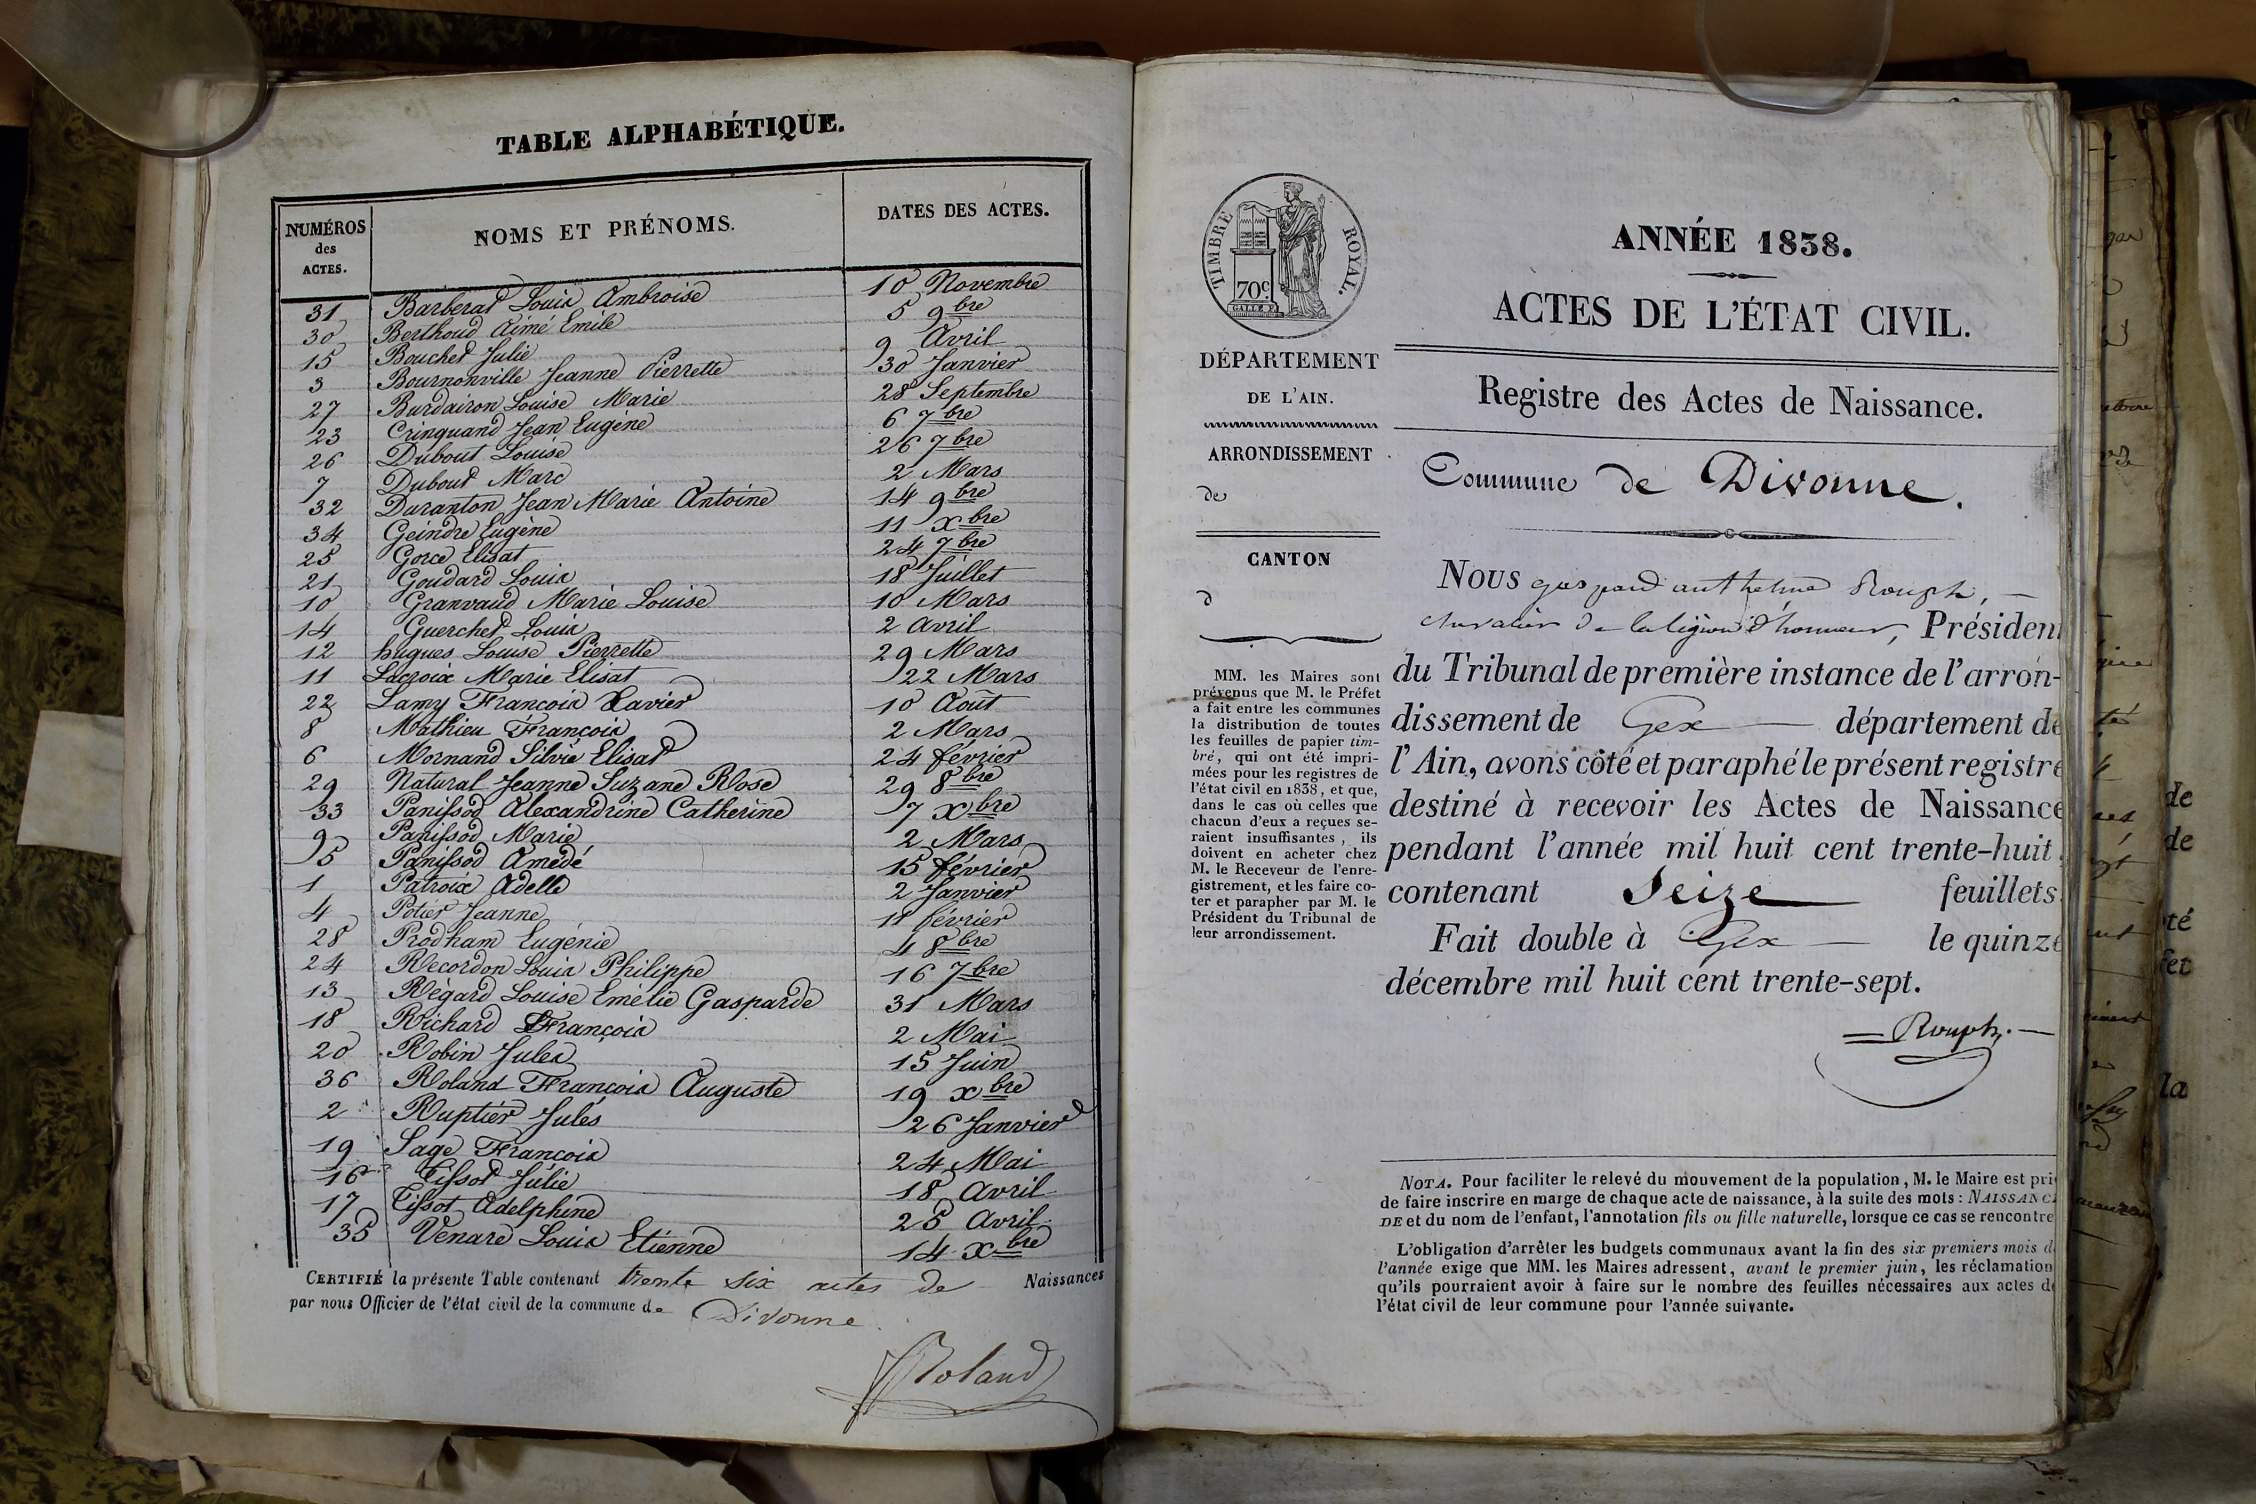 TABLE ALPHABÉTIQUE.
NUMÉROS des ACTES. NOMS ET PRÉNOMS. DATES DES ACTES.
31 Barberat Louis Ambroise 10 Novembre
30 Berthoud Aimé Emile 5 9bre
15 Bouchet Julie 9 Avril
3 Bournonville Jeanne Pierrette 30 Janvier
27 Burdairon Louise Marie 28 Septembre
23 Cringuand Jean Eugène 6 7bre
26 Dubout Louise 26 7bre
7 Dubout Marc 2 Mars
32 Duranton Jean Marie Antoine 14 9bre
34 Geindre Eugène 11 xbre
25 Gorce Elisat 24 7bre
21 Goudard Louis 18 Juillet
10 Granvaud Marie Louise 10 Mars
14 Guerchet Louis 2 avril
12 hugues Louise Pierrette 29 Mars
11 Lacroix Marie Elisat 22 Mars
22 Lamy François Xavier 10 Août
8 Mathieu François 2 Mars
6 Mornand Silvie Elisat 24 février
29 Natural Jeanne Suzane Rose 29 8bre
33 Panissod Alexandrine Catherine 7 xbre
9 Panissod Marie 2 Mars
5 Panissod Amédé 15 février
1 Patroix Adelle 2 Janvier
4 Potier Jeanne 11 février
28 Prodham Eugénie 4 8bre
24 Recordon Louis Philippe 16 7bre
13 Régard Louise Emélie Gasparde 31 Mars
18 Richard François 2 Mai
20 Robin Jules 15 Juin
36 Roland François Auguste 19 xbre
2 Ruptier Jules 26 Janvier
19 Sage François 24 Mai
16 Tissot Julie 18 Avril
17 Tissot Adelphine 25 Avril
35 Venare Louis Etienne 14 xbre
CERTIFIÉ la présente Table contenant trente six actes de Naissances
par nous Officier de l'état civil de la commune de Divonne
Roland
TIMBRE ROYAL.
70c
ANNÉE 1838.
ACTES DE L'ÉTAT CIVIL.
Registre des Actes de Naissance.
Commune de Divonne.
DÉPARTEMENT
DE L'AIN.
ARRONDISSEMENT
de
CANTON
d
MM. les Maires sont
prévenus que M. le Préfet
a fait entre les communes
la distribution de toutes
les feuilles de papier tim-
bré, qui ont été impri-
mées pour les registres de
l'état civil en 1838, et que,
dans le cas où celles que
chacun d'eux a reçues se-
raient insuffisantes, ils
doivent en acheter chez
M. le Receveur de l'enre-
gistrement, et les faire co-
ter et parapher par M. le
Président du Tribunal de
leur arrondissement.
NOUS gaspard anthelme Rouph,
chevalier de la légion d'honneur, Présiden
du Tribunal de première instance de l'arron-
dissement de Gex département de
l'Ain, avons côté et paraphé le présent registre
destiné à recevoir les Actes de Naissance
pendant l'année mil huit cent trente-huit
contenant Seize feuillets
Fait double à Gex le quinze
décembre mil huit cent trente-sept.
Rouph
NOTA. Pour faciliter le relevé du mouvement de la population, M. le Maire est prié
de faire inscrire en marge de chaque acte de naissance, à la suite des mots: NAISSANCE
DE et du nom de l'enfant, l'annotation fils ou fille naturelle, lorsque ce cas se rencontre
L'obligation d'arrêter les budgets communaux avant la fin des six premiers mois de
l'année exige que MM. les Maires adressent, avant le premier juin, les réclamation
qu'ils pourraient avoir à faire sur le nombre des feuilles nécessaires aux actes de
l'état civil de leur commune pour l'année suivante.